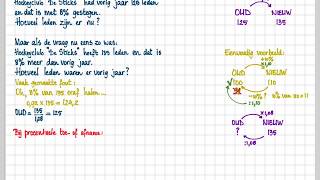 Hockeyclub "De Sticks" had vorig jaar 125 leden
en dat is met 8% gestegen.
Hoeveel leden zijn er nu?
OUD NIEUW
125 135
Maar als de vraag nu eens zo was:
Hockeyclub "De Sticks" heeft 135 leden en dat is
8% meer dan vorig jaar.
Hoeveel leden waren er vorig jaar?
Vaak gemaakte fout:
Ok, 8% van 135 eraf halen ...
0,92 × 135 = 124,2
OUD = 135/1,08 = 125
Bij procentuele toe- of afname:
Eenvoudig voorbeeld:
+10%
×1,10
OUD NIEUW
100 110
-10%? 10% van 110 = 11
:1,10
×1,08
OUD NIEUW
? 135